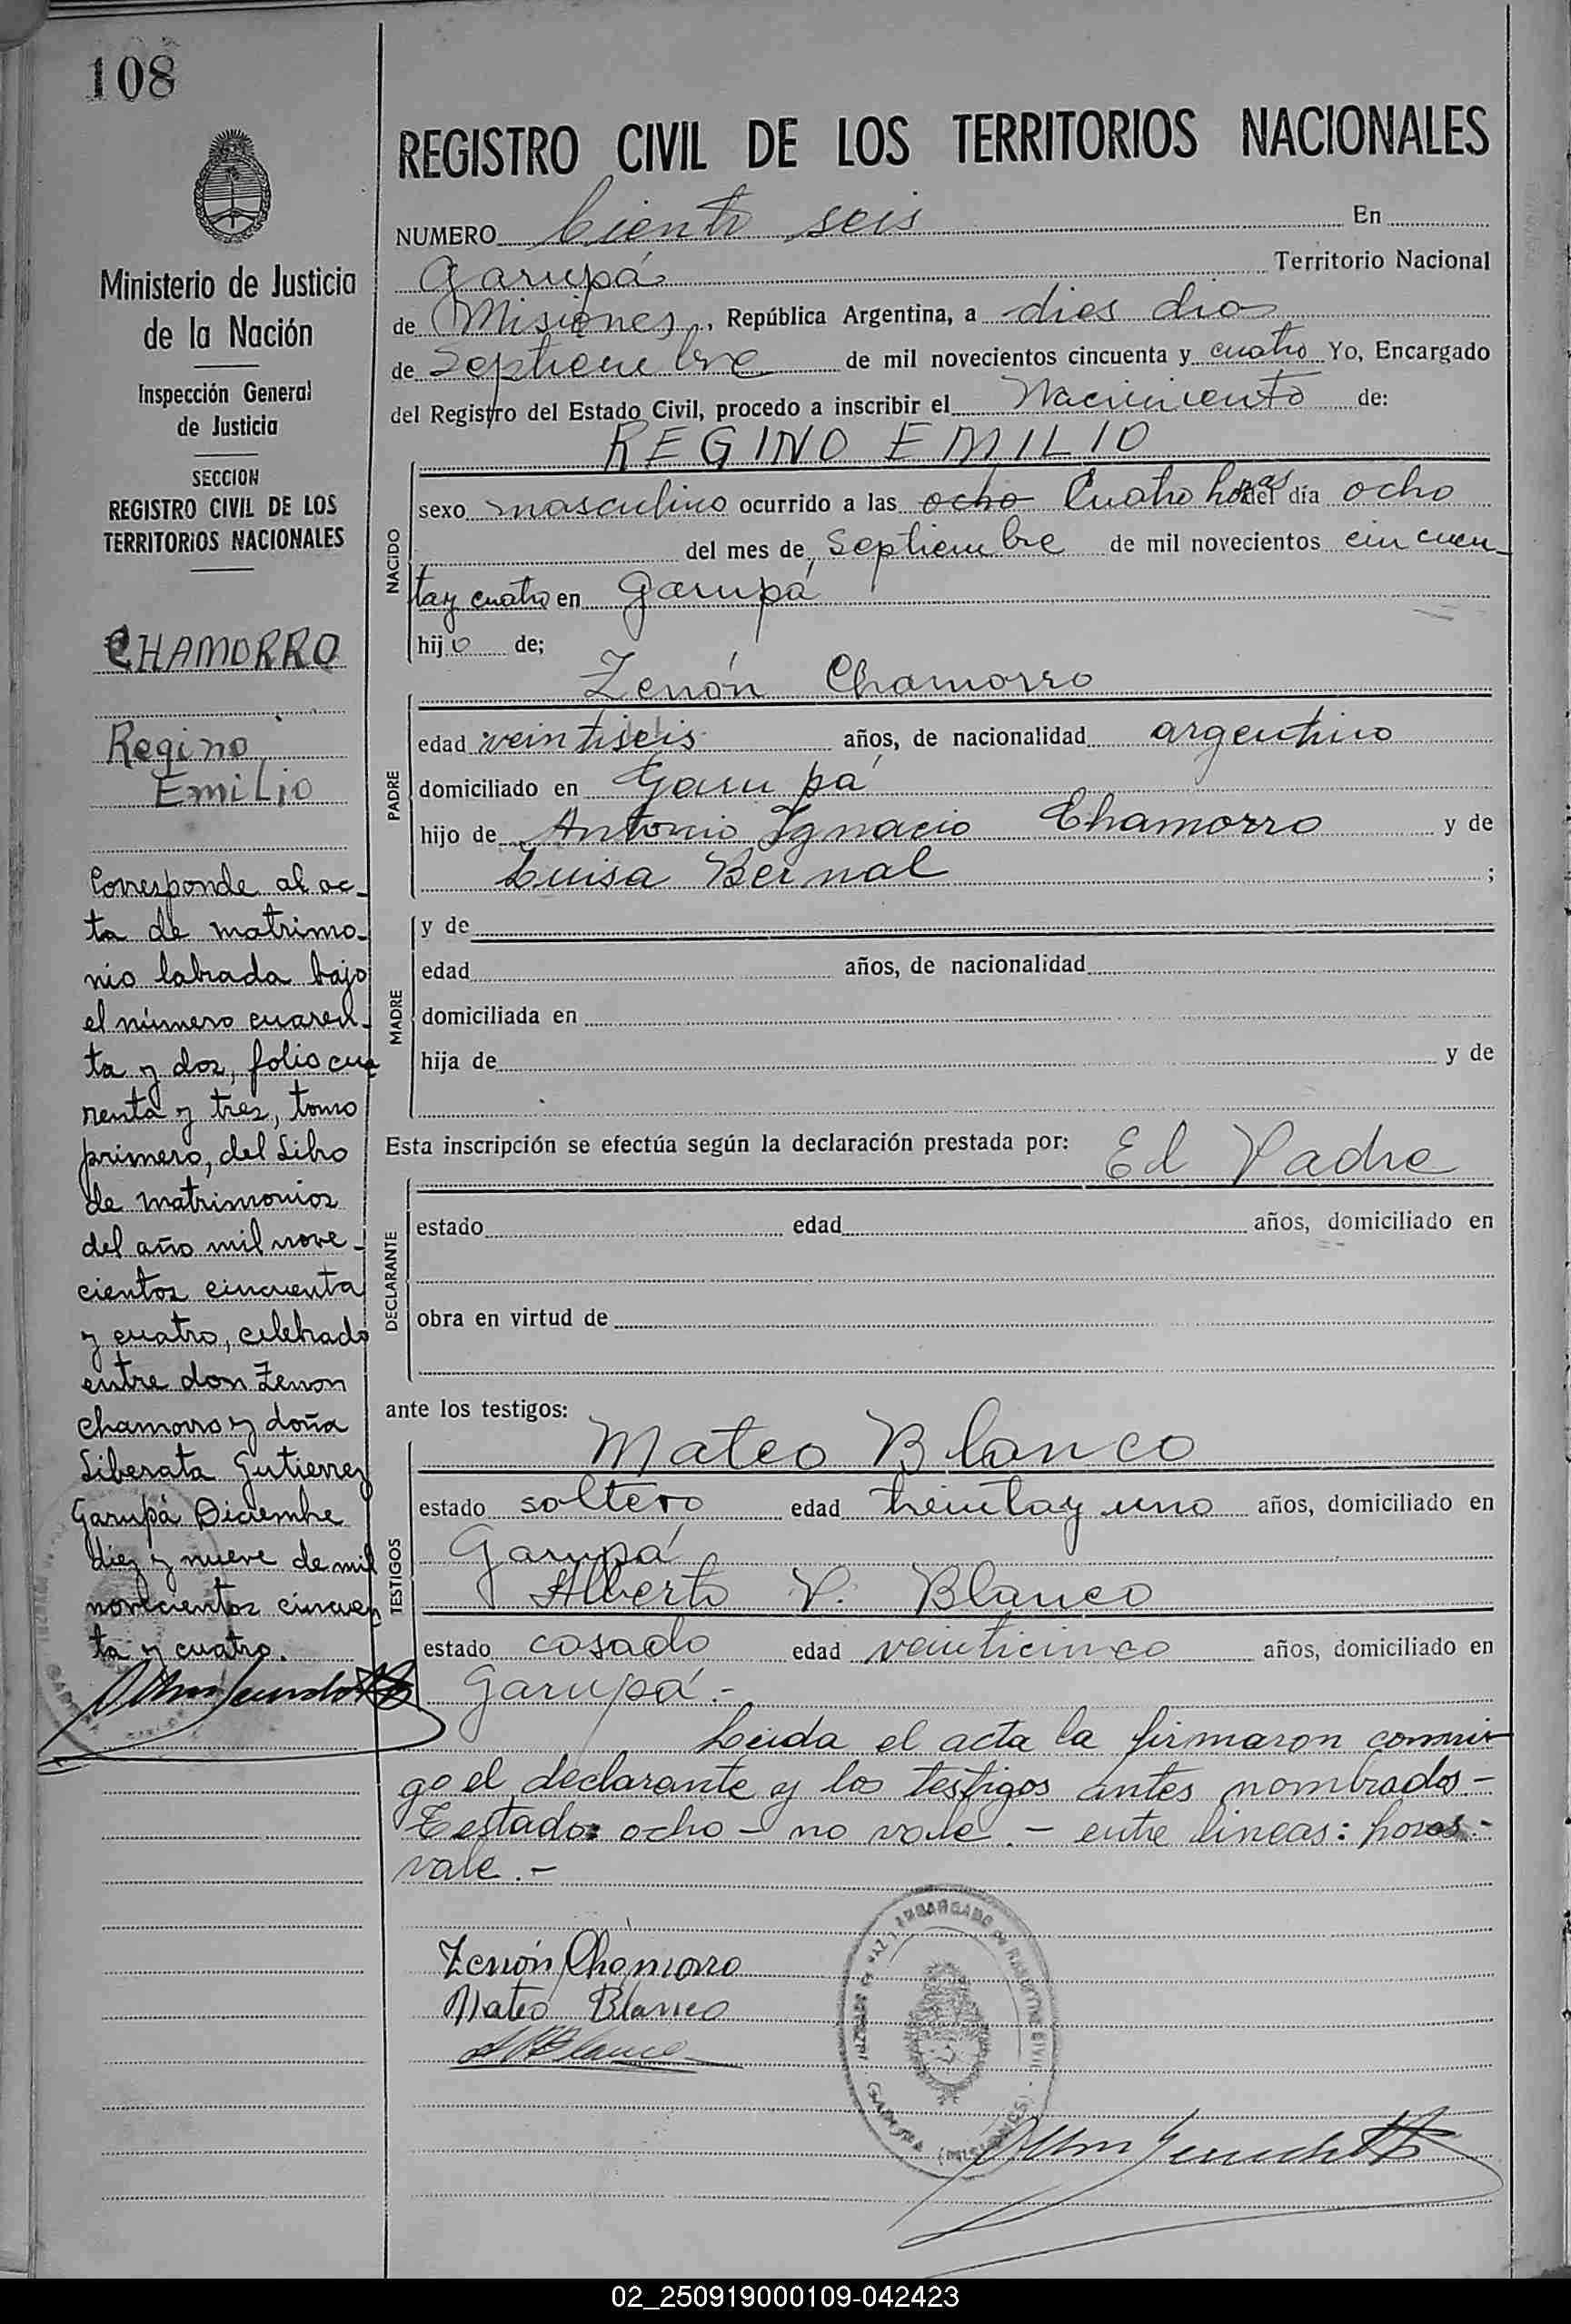 108
Ministerio de Justicia
de la Nación
Inspección General
de Justicia
SECCION
REGISTRO CIVIL DE LOS
TERRITORIOS NACIONALES
CHAMORRO
Regino
Emilio
Corresponde al ac-
ta de matrimo-
nio labrada bajo
el número cuaren-
ta y dos, folio cua
renta y tres, tomo
primero, del Libro
de matrimonios
del año mil nove-
cientos cincuenta
y cuatro, celebrado
entre don Zenon
Chamorro y doña
Liberata Gutierrez
Garupá Diciembre
diez y nueve de mil
novecientos cincuen
ta y cuatro.
REGISTRO CIVIL DE LOS TERRITORIOS NACIONALES
NUMERO Ciento seis En
Garupá Territorio Nacional
de Misiones, República Argentina, a dies dias
de Septiembre de mil novecientos cincuenta y cuatro Yo, Encargado
del Registro del Estado Civil, procedo a inscribir el Nacimiento de:
REGINO EMILIO
NACIDO
sexo masculino ocurrido a las ocho Cuatro horas del día ocho
del mes de Septiembre de mil novecientos cincuen-
ta y cuatro en Garupá
hijo de;
Zenón Chamorro
PADRE
edad veintiseis años, de nacionalidad argentino
domiciliado en Garupá
hijo de Antonio Ignacio Chamorro y de
Luisa Bernal ;
MADRE
y de
edad años, de nacionalidad
domiciliada en
hija de y de
Esta inscripción se efectúa según la declaración prestada por: El Padre
DECLARANTE
estado edad años, domiciliado en
obra en virtud de
ante los testigos:
Mateo Blanco
TESTIGOS
estado soltero edad treintay uno años, domiciliado en
Garupá
Alberto V. Blanco
estado casado edad veinticinco años, domiciliado en
Garupá.-
Leida el acta la firmaron conmi-
go el declarante y los testigos antes nombrados.-
Testado: ocho - no vale.- entre lineas: horas.-
vale.-
Zenón Chamorro
Mateo Blanco
02_250919000109-042423